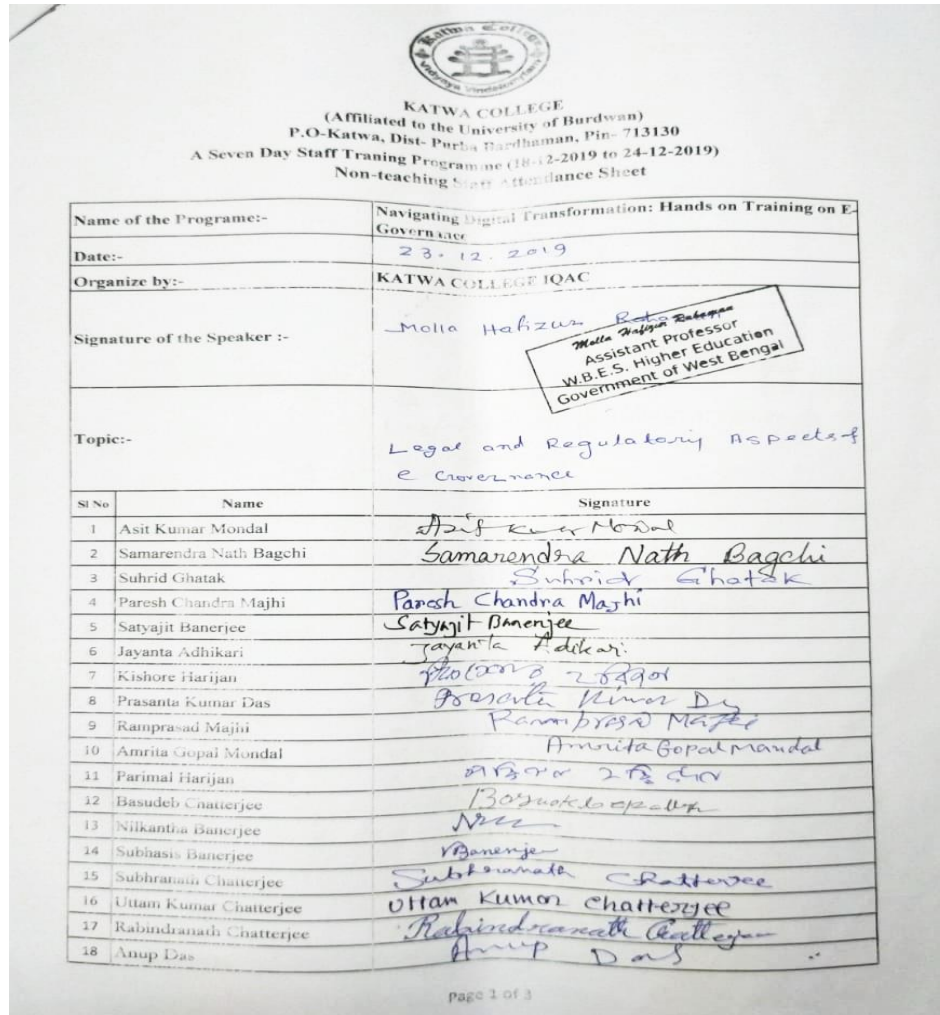 Katwa College
KATWA COLLEGE
(Affiliated to the University of Burdwan)
P.O-Katwa, Dist- Purba Bardhaman, Pin- 713130
A Seven Day Staff Traning Programme (18-12-2019 to 24-12-2019)
Non-teaching Staff Attendance Sheet
Name of the Programe:- Navigating Digital Transformation: Hands on Training on E-
Governance
Date:- 23.12.2019
Organize by:- KATWA COLLEGE IQAC
Signature of the Speaker :- Molla Hafizur
Molla Hafizur Rahaman
Assistant Professor
W.B.E.S. Higher Education
Government of West Bengal
Topic:- Legal and Regulatory Aspects of
e Governance
Sl No Name Signature
1 Asit Kumar Mondal Asit Kumar Mondal
2 Samarendra Nath Bagchi Samarendra Nath Bagchi
3 Suhrid Ghatak Suhrid Ghatak
4 Paresh Chandra Majhi Paresh Chandra Majhi
5 Satyajit Banerjee Satyajit Banerjee
6 Jayanta Adhikari Jayanta Adikari
7 Kishore Harijan
8 Prasanta Kumar Das Prasanta Kumar Das
9 Ramprasad Majhi Ramprasad Majhi
10 Amrita Gopal Mondal Amrita Gopal Mandal
11 Parimal Harijan
12 Basudeb Chatterjee
13 Nilkantha Banerjee
14 Subhasis Banerjee Banerjee
15 Subhranath Chatterjee Subhranath Chatterjee
16 Uttam Kumar Chatterjee Uttam Kumar Chatterjee
17 Rabindranath Chatterjee Rabindranath Chatterjee
18 Anup Das Anup Das
Page 1 of 3